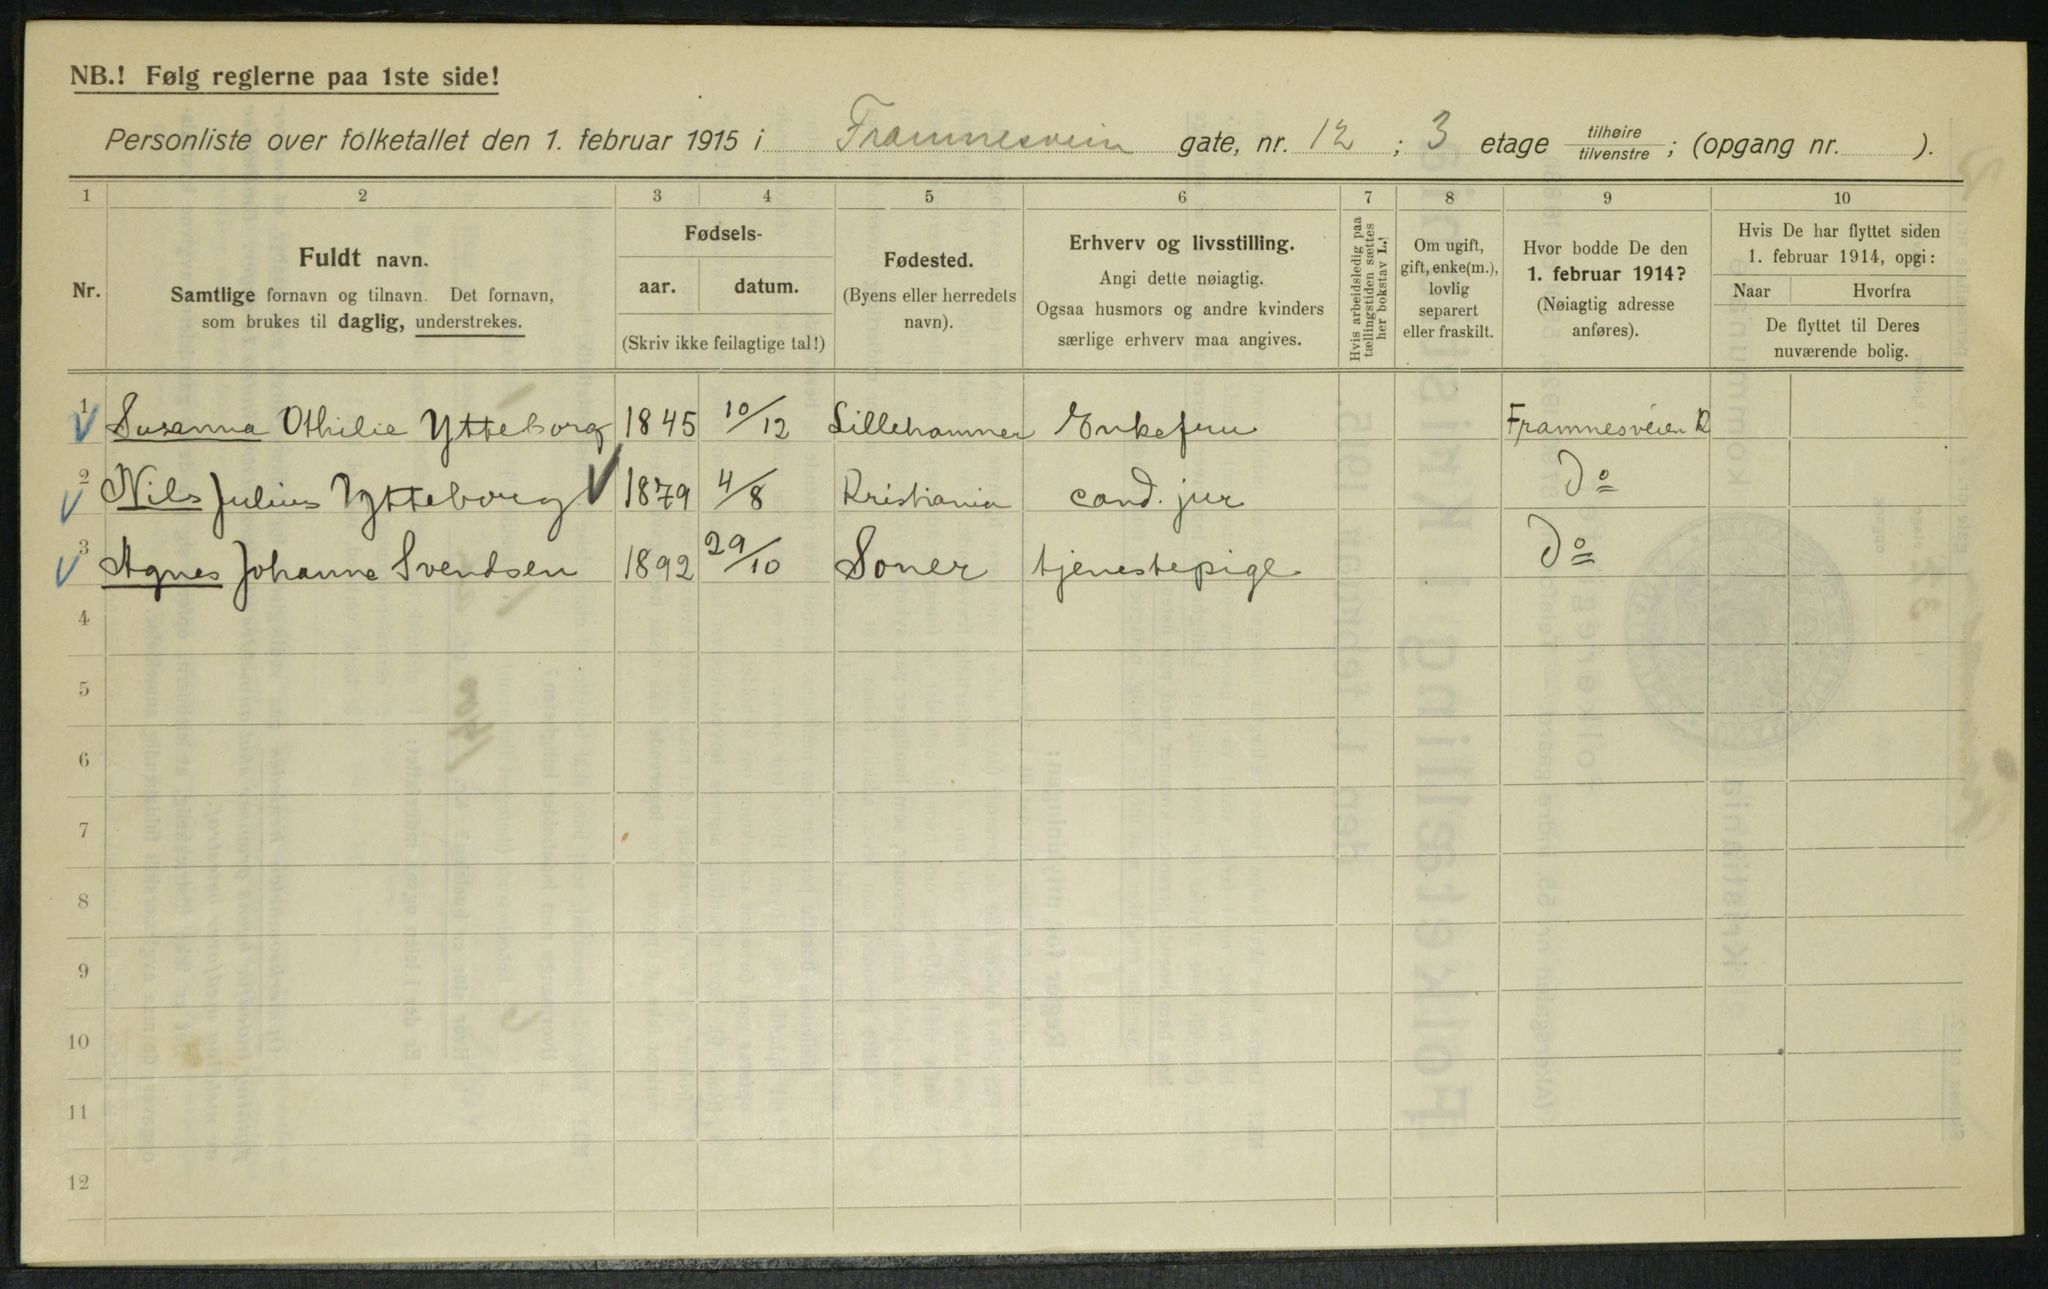 NB.! Følg reglerne paa 1ste side!
Personliste over folketallet den 1. februar 1915 i Framnesvein gate, nr. 12 ; 3 etage tilhøire tilvenstre ; (opgang nr. ).
1 2 3 4 5 6 7 8 9 10
Nr.
Fuldt navn.
Samtlige fornavn og tilnavn. Det fornavn,
som brukes til daglig, understrekes.
Fødsels-
aar. datum.
(Skriv ikke feilagtige tal!)
Fødested.
(Byens eller herredets
navn).
Erhverv og livsstilling.
Angi dette nøiagtig.
Ogsaa husmors og andre kvinders
særlige erhverv maa angives.
Hvis arbeidsledig paa
tællingstiden sættes
her bokstav L.!
Om ugift,
gift, enke(m.),
lovlig
separert
eller fraskilt.
Hvor bodde De den
1. februar 1914?
(Nøiagtig adresse
anføres).
Hvis De har flyttet siden
1. februar 1914, opgi:
Naar Hvorfra
De flyttet til Deres
nuværende bolig.
1 Susanna Othilie Ytteborg 1845 10/12 Lillehammer Enkefru Framnesveien 12
2 Nils Julius Ytteborg 1879 4/8 Kristiania cand. jur Do
3 Agnes Johanne Svendsen 1892 29/10 Soner tjenestepige Do
4
5
6
7
8
9
10
11
12